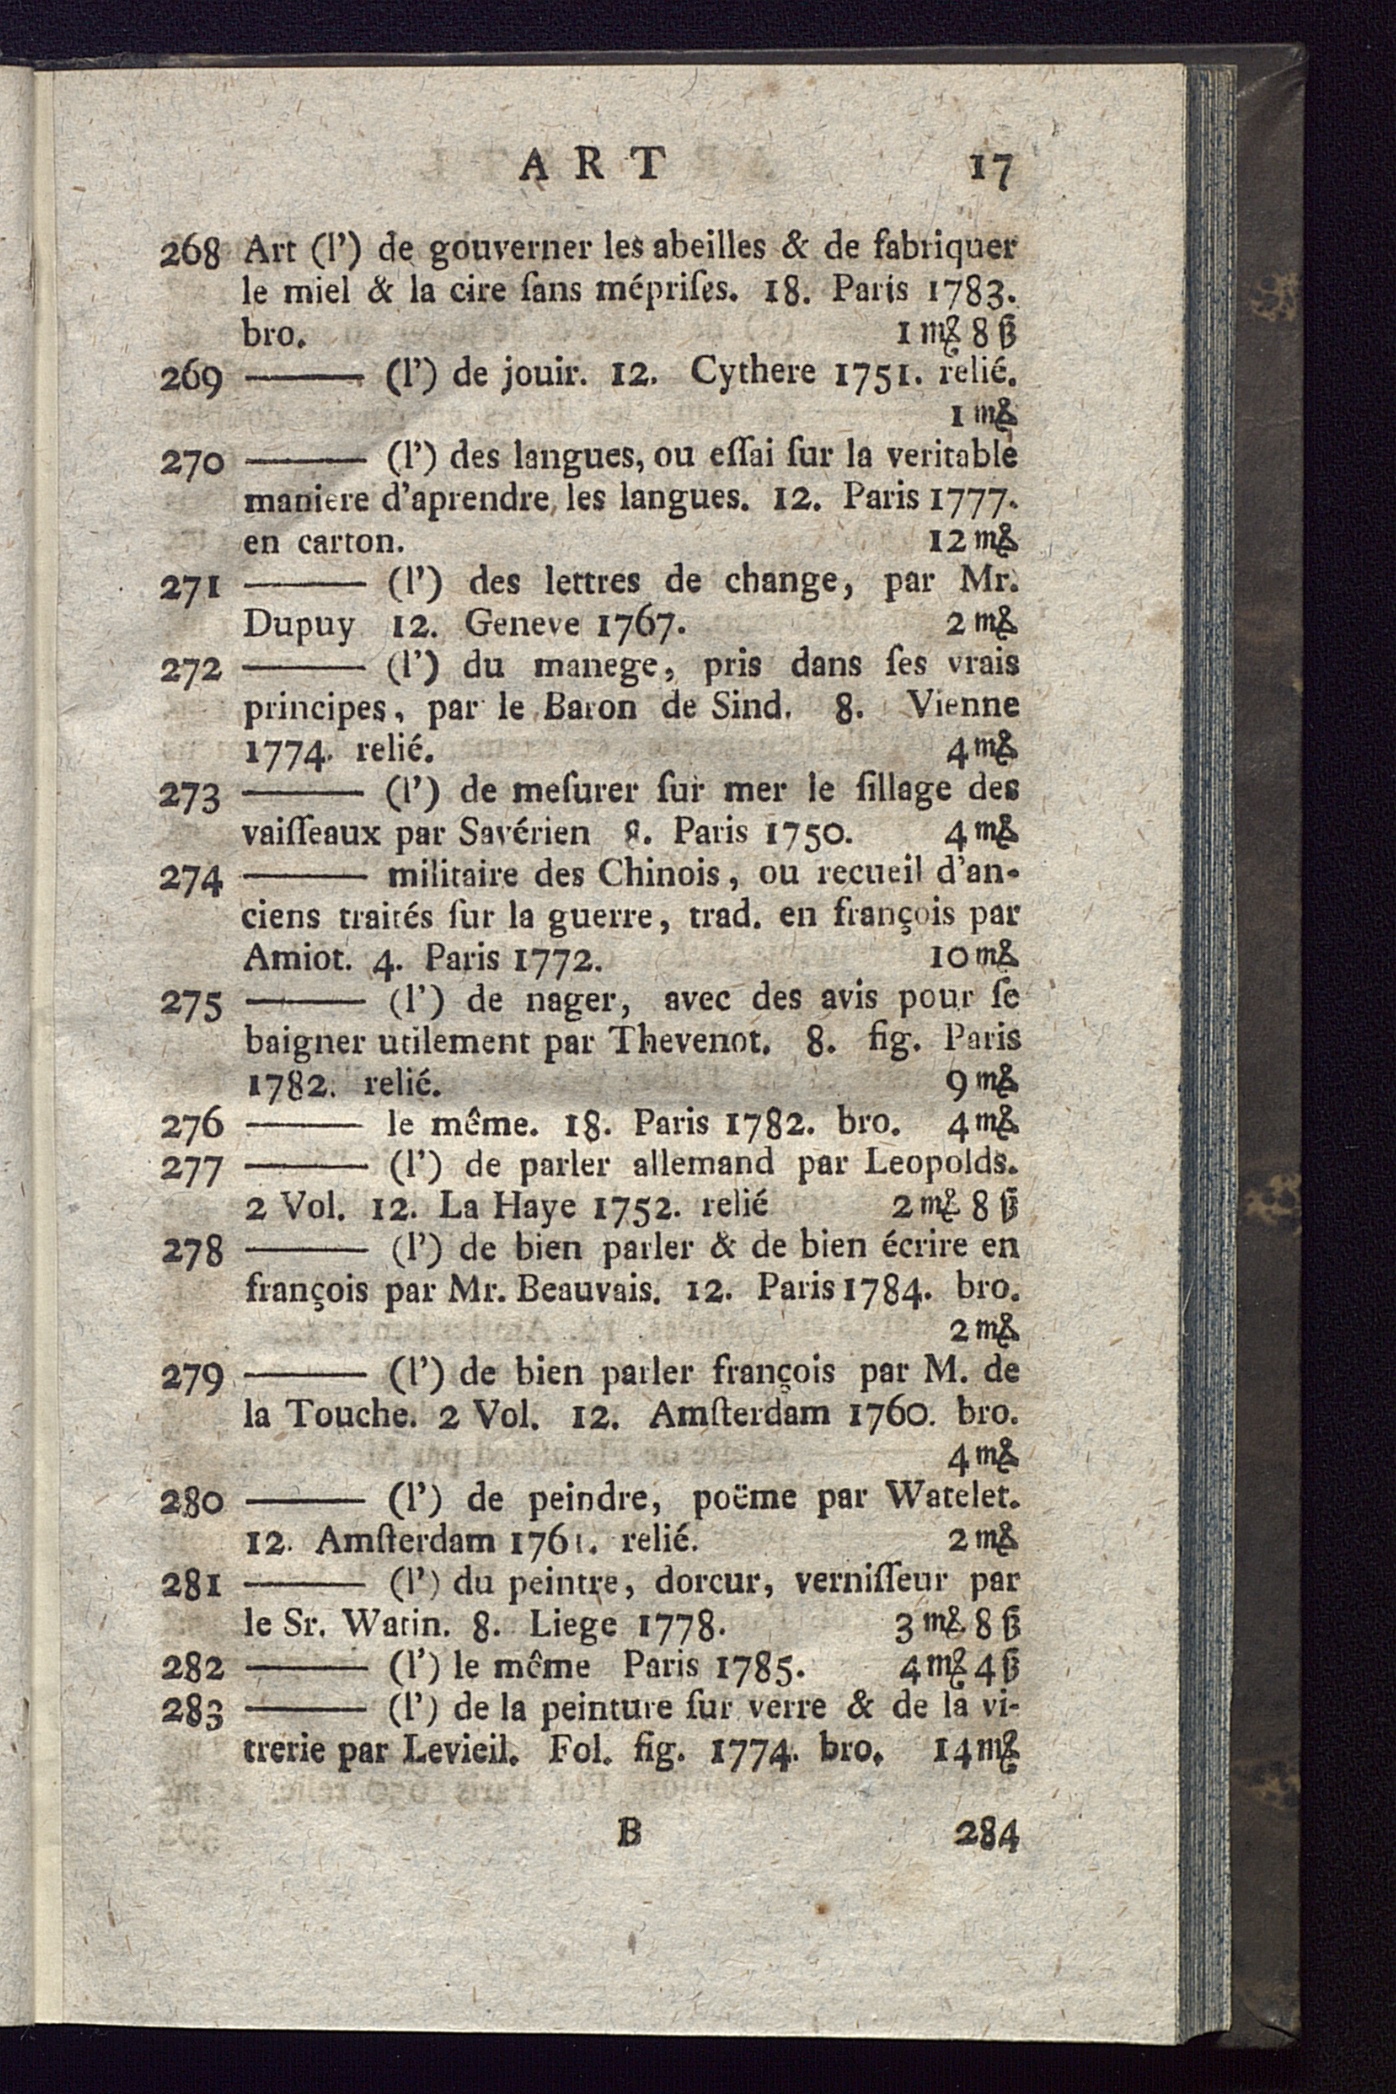 ART 17
268 Art (l') de gouverner les abeilles & de fabriquer
le miel & la cire ſans mépriſes. 18. Paris 1783.
bro. 1 m& 8 ß
269 ——— (l') de jouir. 12. Cythere 1751. relié.
1 m&
270 ——— (l') des langues, ou eſſai ſur la veritable
maniere d'aprendre les langues. 12. Paris 1777.
en carton. 12 m&
271 ——— (l') des lettres de change, par Mr.
Dupuy 12. Geneve 1767. 2 m&
272 ——— (l') du manege, pris dans ſes vrais
principes, par le Baron de Sind. 8. Vienne
1774. relié. 4 m&
273 ——— (l') de meſurer ſur mer le ſillage des
vaiſſeaux par Savérien 8. Paris 1750. 4 m&
274 ——— militaire des Chinois, ou recueil d'an-
ciens traités ſur la guerre, trad. en françois par
Amiot. 4. Paris 1772. 10 m&
275 ——— (l') de nager, avec des avis pour ſe
baigner utilement par Thevenot. 8. fig. Paris
1782. relié. 9 m&
276 ——— le même. 18. Paris 1782. bro. 4 m&
277 ——— (l') de parler allemand par Leopolds.
2 Vol. 12. La Haye 1752. relié 2 m& 8 ß
278 ——— (l') de bien parler & de bien écrire en
françois par Mr. Beauvais. 12. Paris 1784. bro.
2 m&
279 ——— (l') de bien parler françois par M. de
la Touche. 2 Vol. 12. Amſterdam 1760. bro.
4 m&
280 ——— (l') de peindre, poëme par Watelet.
12. Amſterdam 1761. relié. 2 m&
281 ——— (l') du peintre, dorcur, verniſſeur par
le Sr. Watin. 8. Liege 1778. 3 m& 8 ß
282 ——— (l') le même Paris 1785. 4 m& 4 ß
283 ——— (l') de la peinture ſur verre & de la vi-
trerie par Levieil. Fol. fig. 1774. bro. 14 m&
B 284